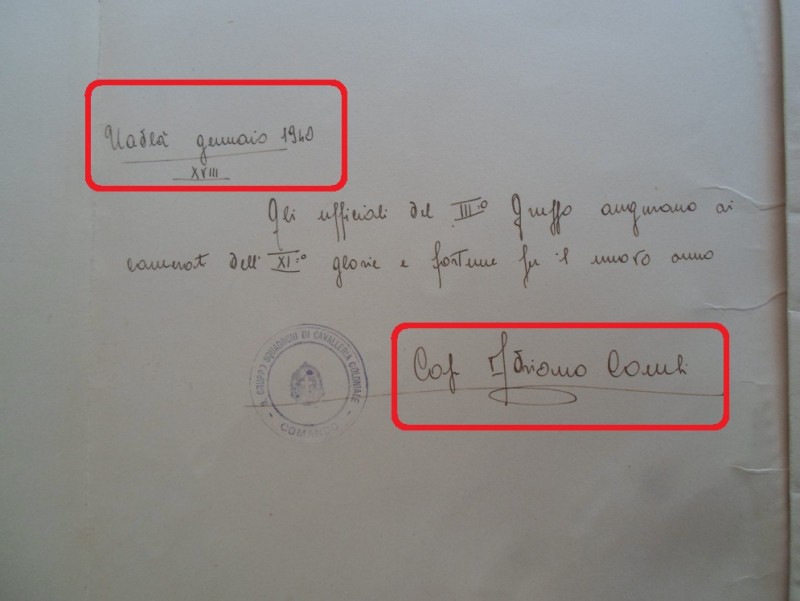 gennaio 1940
XVIII
Gli ufficiali del III.o Gruppo augurano ai
camerati dell' XI.o glorie e fortune per il nuovo anno
Cap.
GRUPPI SQUADRONI DI CAVALLERIA COLONIALE
COMANDO